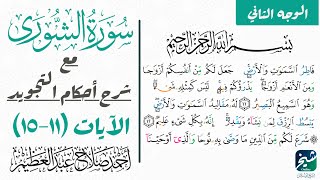 الوجه الثاني
سورة الشورى
مع
شرح أحكام التجويد
الآيات (١١-١٥)
أحمد صلاح عبدالعظيم
بسم الله الرحمن الرحيم
فاطر السموت والأرض جعل لكم من أنفسكم أزوجا
ومن الأنعم أزوجا يذرؤكم فيه ليس كمثله شيء
وهو السميع البصير ١١ له مقاليد السموت والأرض
يبسط الرزق لمن يشاء ويقدر إنه بكل شيء عليم ١٢
شرع لكم من الدين ما وصى به نوحا والذي أوحينا
شيخ